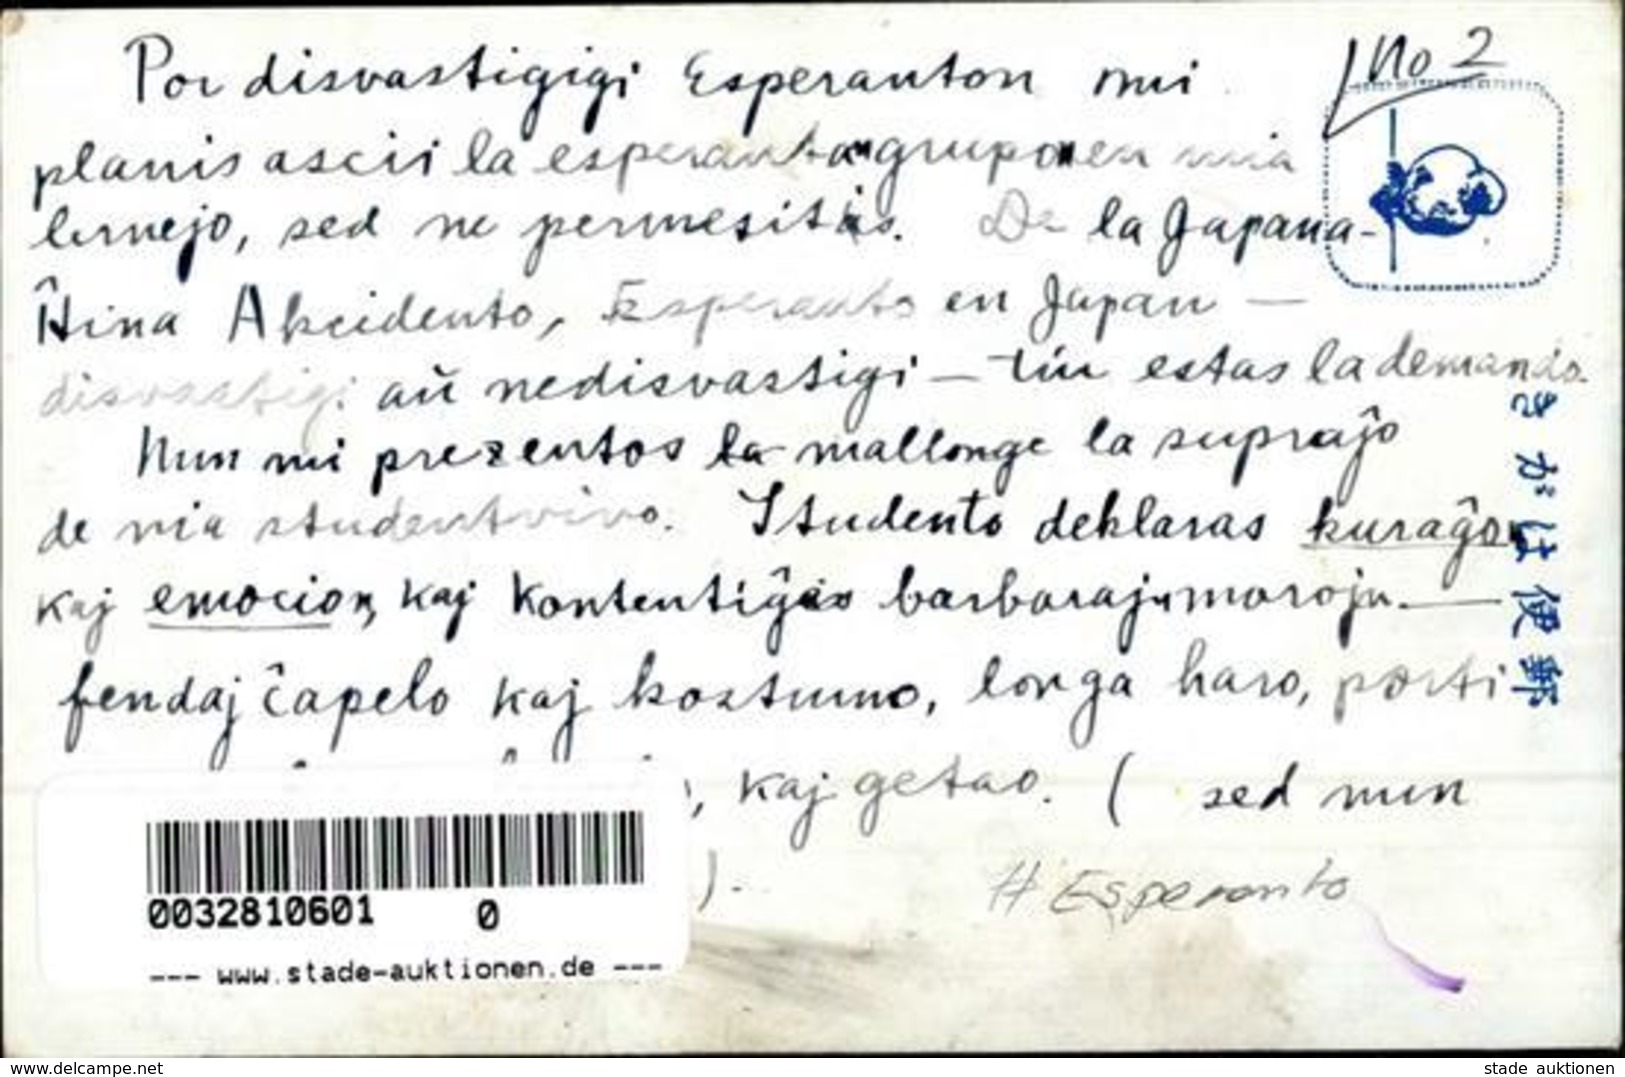 No 2
Por disvastigigi Esperanton mi
planis ascii la esperantan grupon en mia
lernejo, sed ne permesitis. De la Japana-
Ĥina Akcidento, Esperanto en Japan —
disvastigi aŭ nedisvastigi — tiu estas la demando.
Nun mi prezentos la mallonge la supraĵo
de mia studentvivo. Studento deklaras kuraĝon
kaj emocion, kaj kontentiĝas barbarajn morojn. —
fendaj ĉapelo kaj kostumo, longa haro, porti
, kaj getao. ( sed nun
).
# Esperanto
きがは便郵
0032810601 0
--- www.stade-auktionen.de ---
www.delcampe.net
stade auktionen